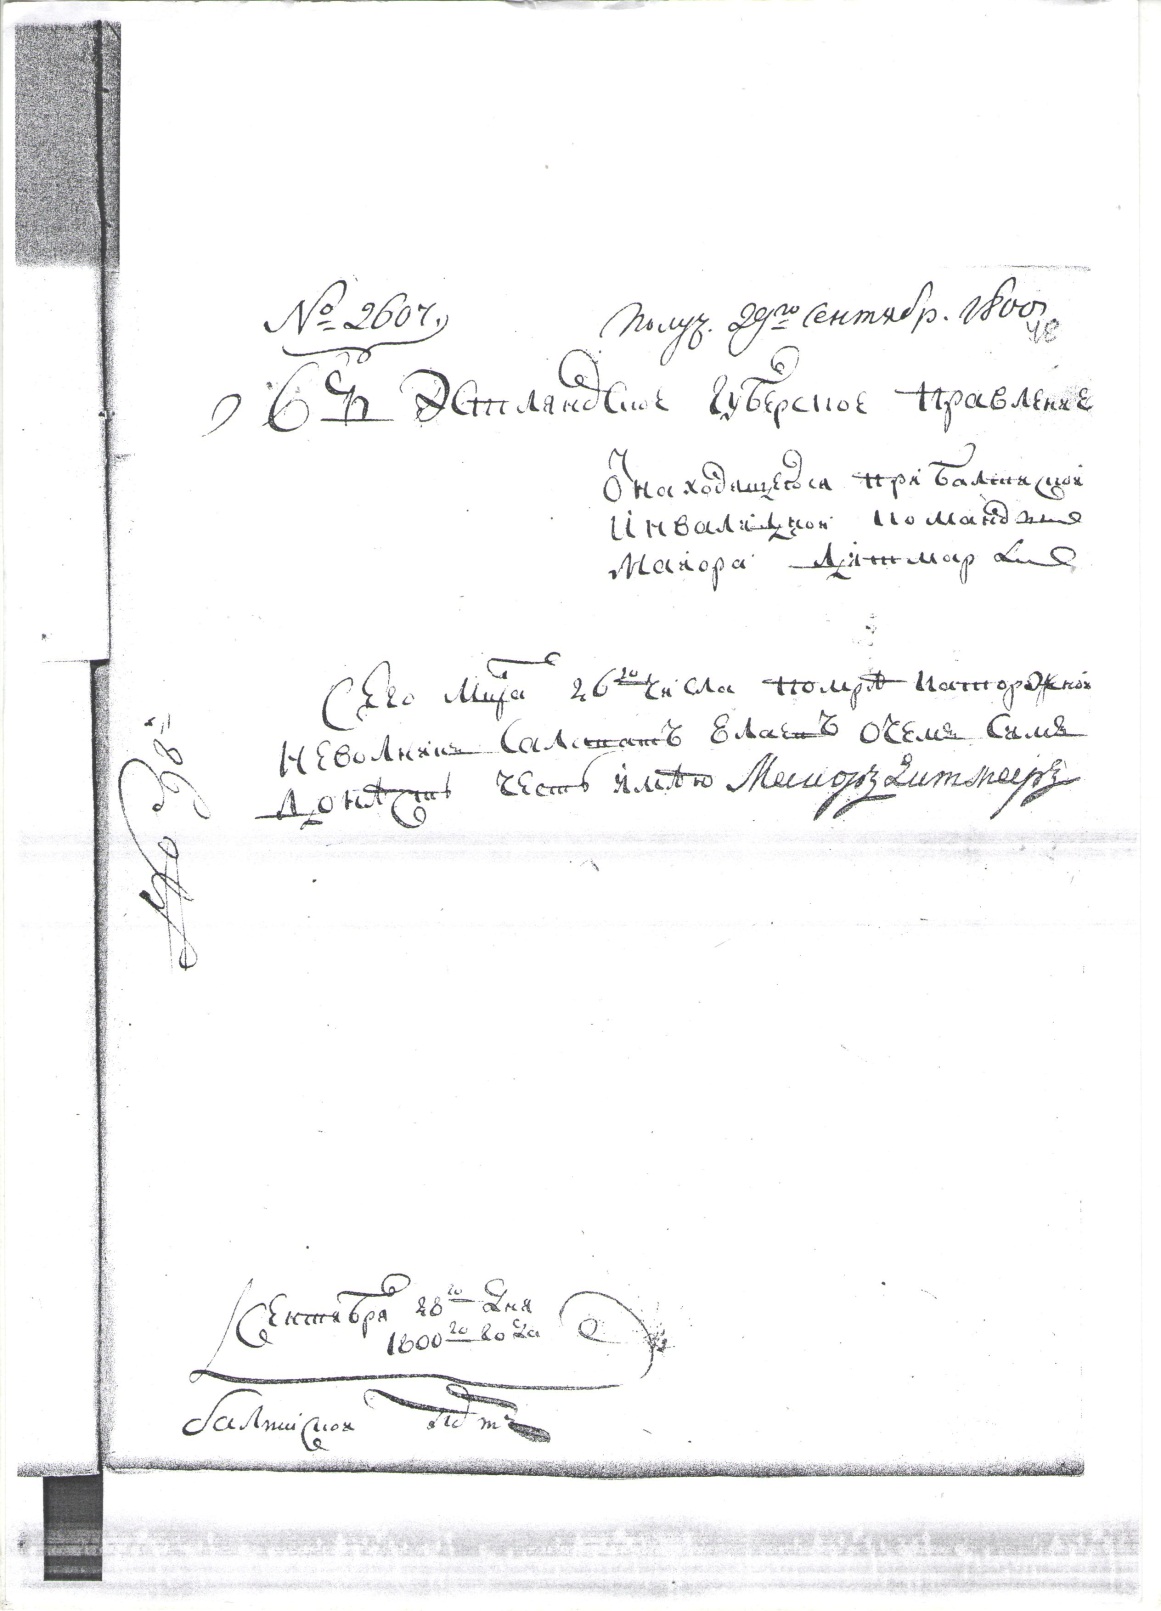 № 2607. Получ. 29го сентябр. 1800
48
въ Эстляндское Губерское правление
Унаходящегося при балтиской
инвалидной командые
Маиора Дитмар
Сего мца 26го числа помре каторжной
неволник Салаватъ Елаевъ очем сим
донѣсть честь имѣю Маиоръ Дитмаръ
№ 398й
Сентября 28го дня
1800го года
балтиской порт